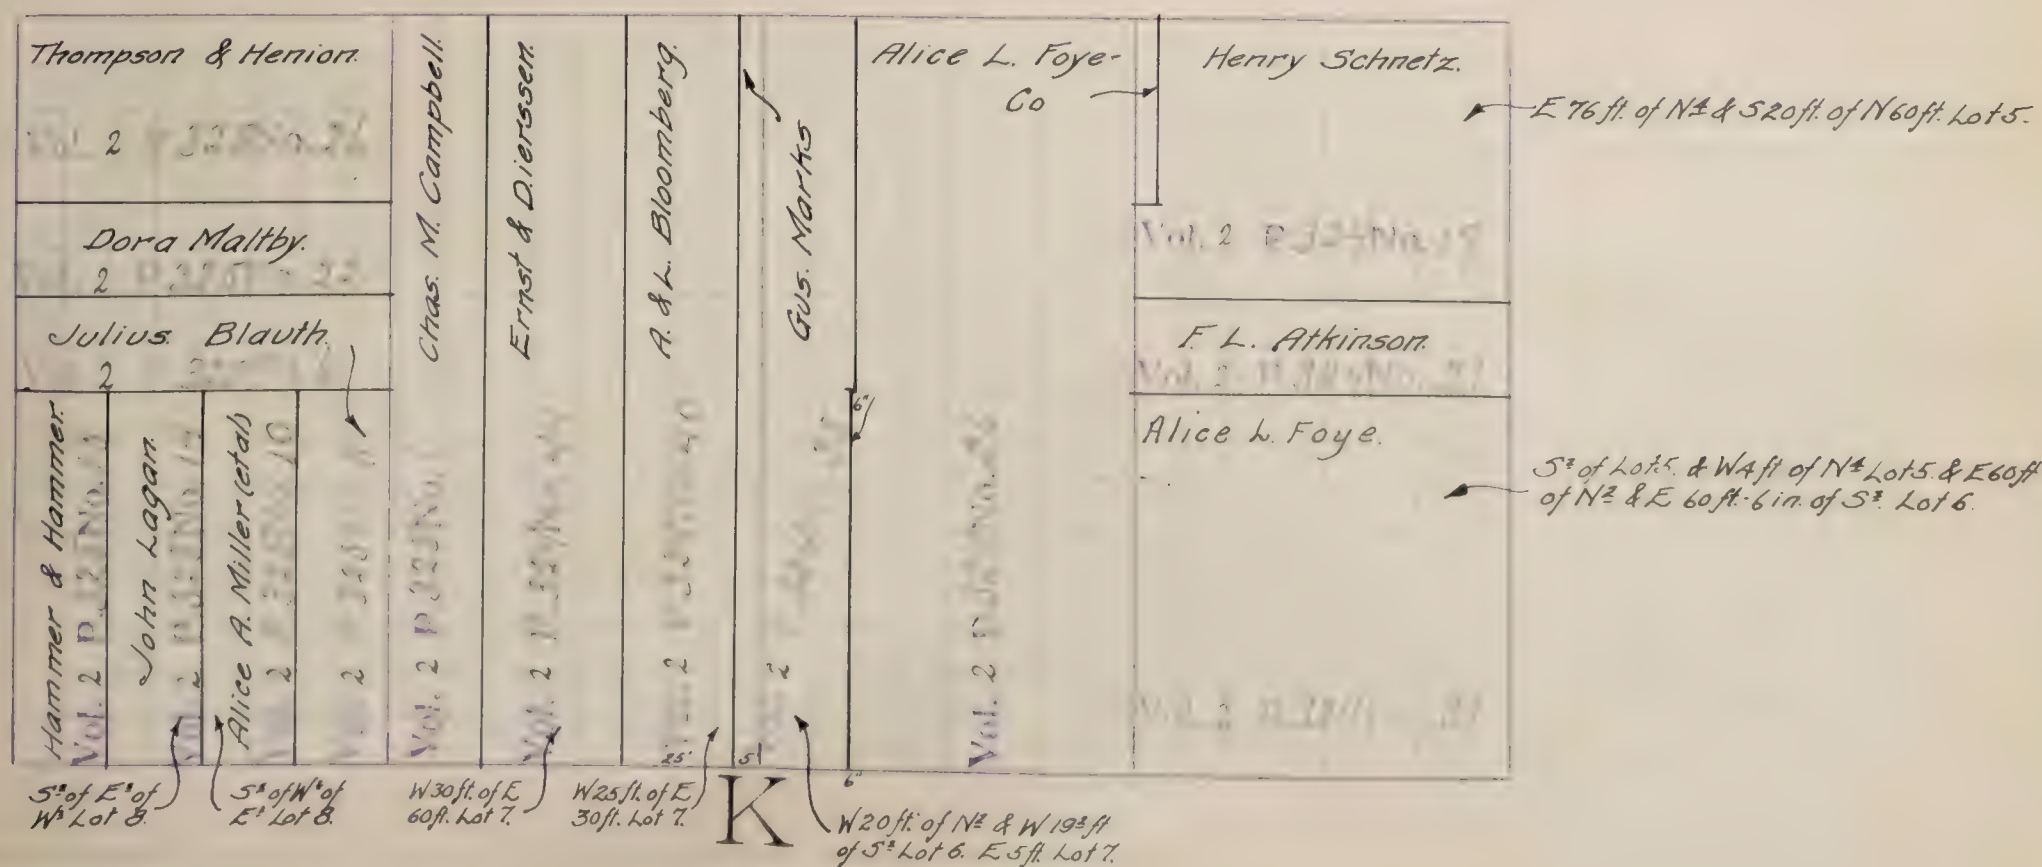 Thompson & Henion.
Vol. 2
Dora Maltby.
2
Julius Blauth.
2
Hammer & Hammer.
Vol. 2 P.
John Lagan.
Vol. 2
Alice A. Miller (et al)
2
2
Chas. M. Campbell.
Vol. 2 P
Ernst & Dierssen.
Vol. 2 P
A. & L. Bloomberg.
2
25'
5'
Gus. Marks
2
6"
6"
Alice L. Foye-
Co
Vol. 2
Henry Schnetz.
Vol. 2
F. L. Atkinson.
Vol. 2
Alice L. Foye.
Vol. 2
E 76 ft. of N¼ & S 20 ft. of N 60 ft. Lot 5.
S½ of Lot 5. & W 4 ft of N¼ Lot 5. & E 60 ft
of N½ & E 60 ft. 6 in. of S½ Lot 6.
S½ of E½ of
W½ Lot 8.
S½ of W½ of
E½ Lot 8.
W 30 ft. of E
60 ft. Lot 7.
W 25 ft. of E
30 ft. Lot 7.
K
W 20 ft. of N½ & W 19½ ft
of S½ Lot 6. E 5 ft. Lot 7.